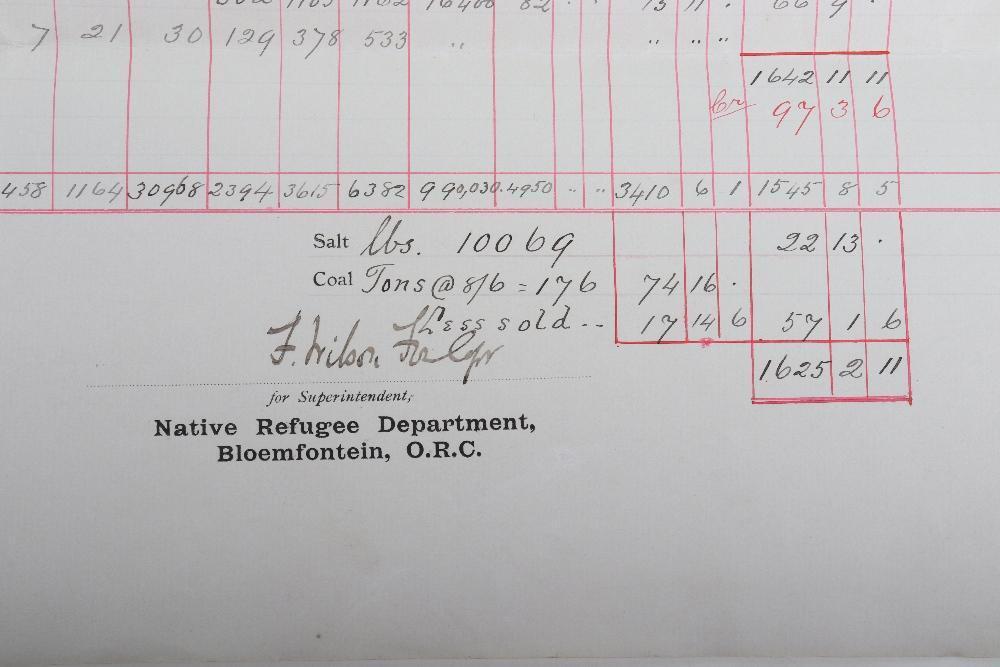 7 21 30 129 378 533 ,, ,, ,, ,,
1642 11 11
Cr 97 3 6
458 1164 30968 2394 3615 6382 990,030 4950 ,, ,, 3410 6 1 1545 8 5
Salt lbs. 10069 22 13 .
Coal Tons @ 8/6 = 176 74 16 .
Less sold -- 17 14 6 57 1 6
F. Wilson
1625 2 11
for Superintendent,
Native Refugee Department,
Bloemfontein, O.R.C.